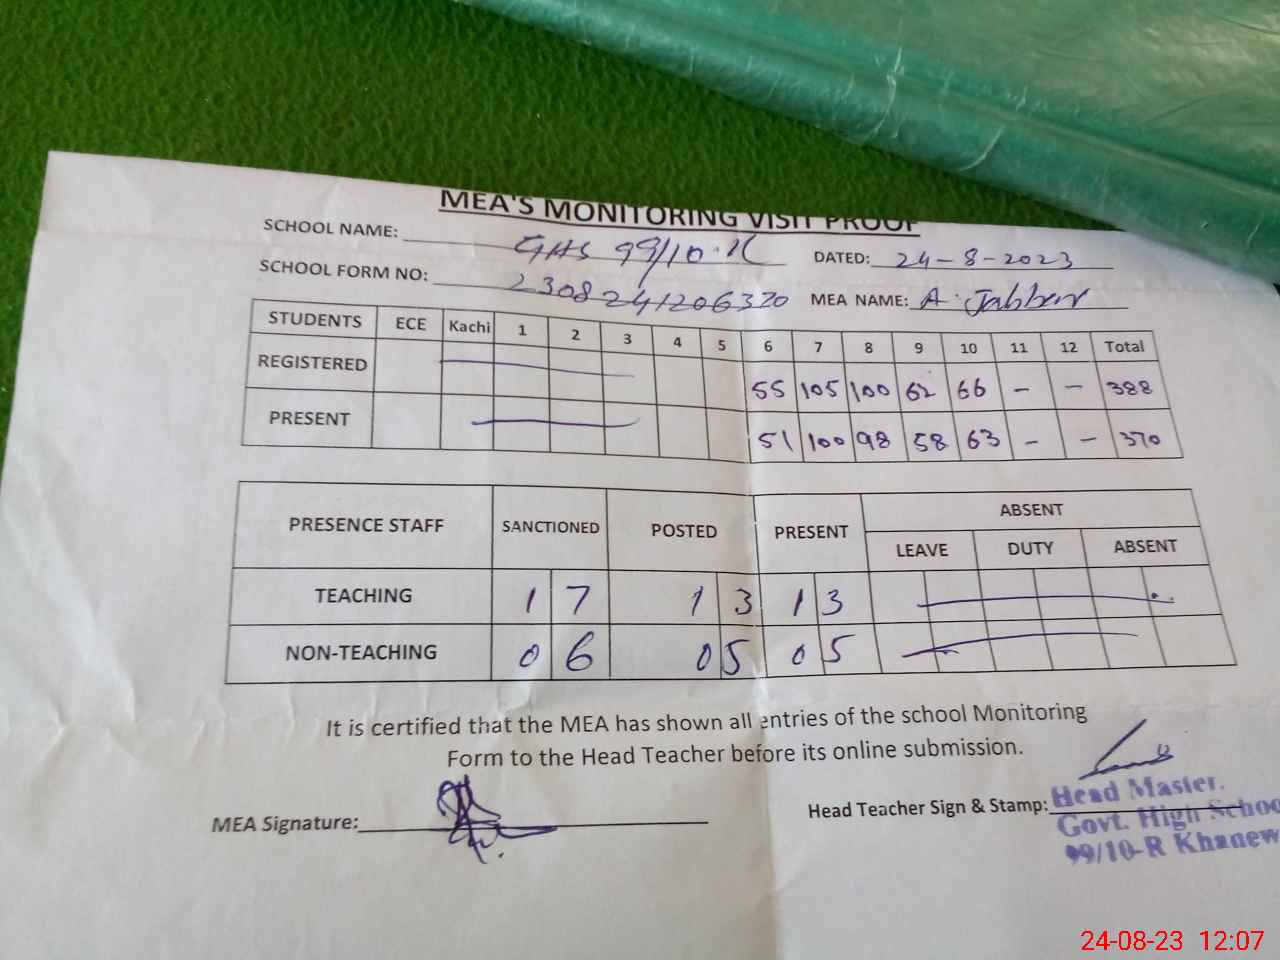 MEA'S MONITORING VISIT PROOF
SCHOOL NAME: GHS 99/10-R
DATED: 24-8-2023
SCHOOL FORM NO: 2308241206320
MEA NAME: A. Jabbar
STUDENTS ECE Kachi 1 2 3 4 5 6 7 8 9 10 11 12 Total
REGISTERED 55 105 100 62 66 - - 388
PRESENT 51 100 98 58 63 - - 370
PRESENCE STAFF SANCTIONED POSTED PRESENT ABSENT
LEAVE DUTY ABSENT
TEACHING 17 13 13
NON-TEACHING 06 05 05
It is certified that the MEA has shown all entries of the school Monitoring
Form to the Head Teacher before its online submission.
MEA Signature:
Head Teacher Sign & Stamp:
Head Master.
Govt. High Schoo
99/10-R Khanew
24-08-23 12:07